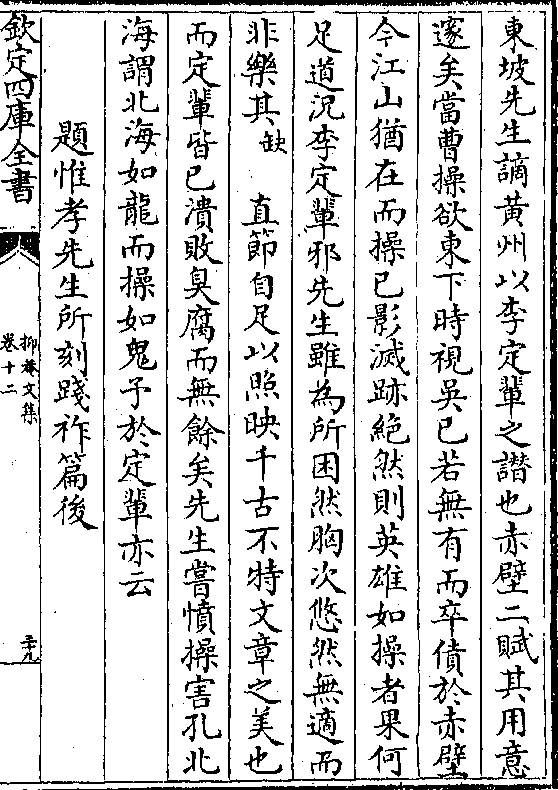 東坡先生謫黃州以李定輩之譖也赤壁二賦其用意
邃矣當曹操欲東下時視吳已若無有而卒僨於赤壁
今江山猶在而操已影滅跡絶然則英雄如操者果何
足道況李定輩邪先生雖為所困然胸次悠然無適而
非樂其缺　直節自足以照映千古不特文章之美也
而定輩皆已潰敗臭腐而無餘矣先生嘗憤操害孔北
海謂北海如龍而操如鬼予於定輩亦云
題惟孝先生所刻踐祚篇後
欽定四庫全書
抑菴文集
卷十二
二十九